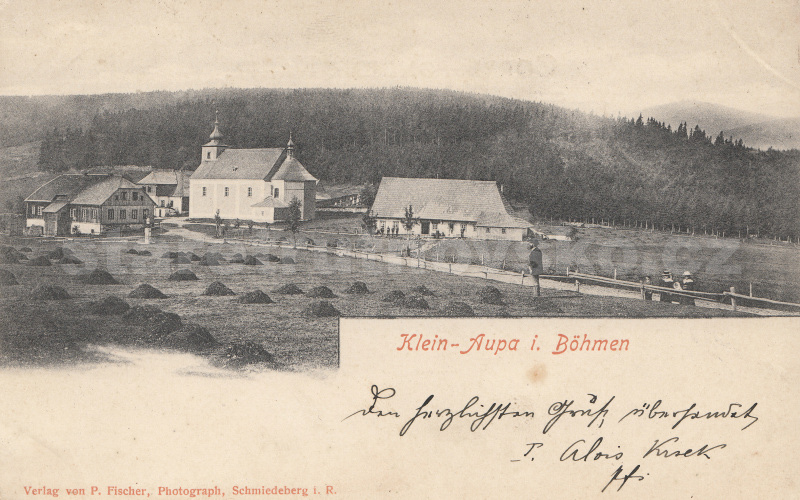 Klein-Aupa i. Böhmen
Den herzlichsten Gruß übersendet
P. Alois
Verlag von P. Fischer, Photograph, Schmiedeberg i. R.